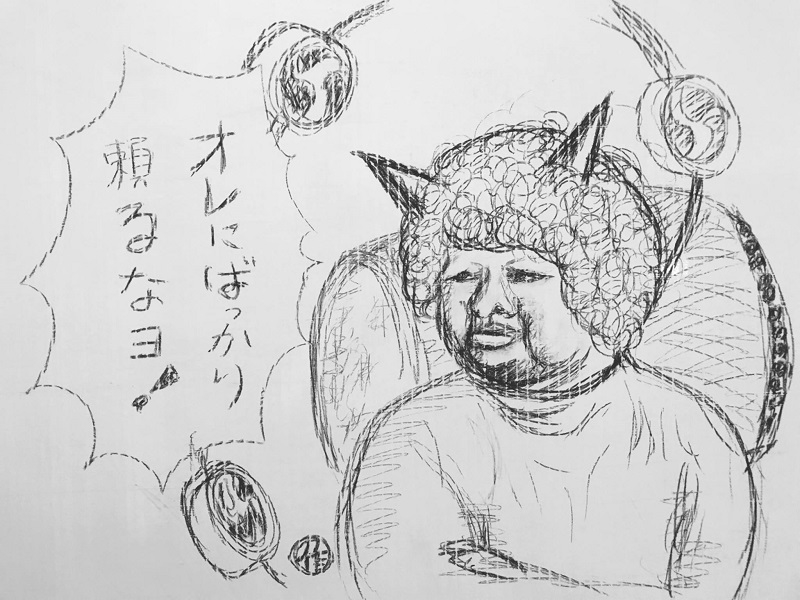 オレにばっかり
頼るなヨ!